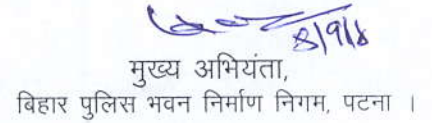 8/9/18
मुख्य अभियंता,
बिहार पुलिस भवन निर्माण निगम, पटना ।